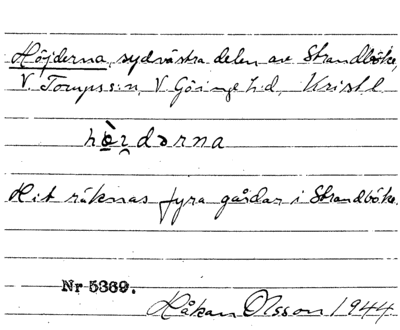 Höjderna, sydvästra delen av Strandböke,
V. Torupssn, V Göinge hd, Kristl
hø̀i̯dərna
Hit räknas fyra gårdar i Strandböke.
Nr 5369.
Håkan Olsson 1944